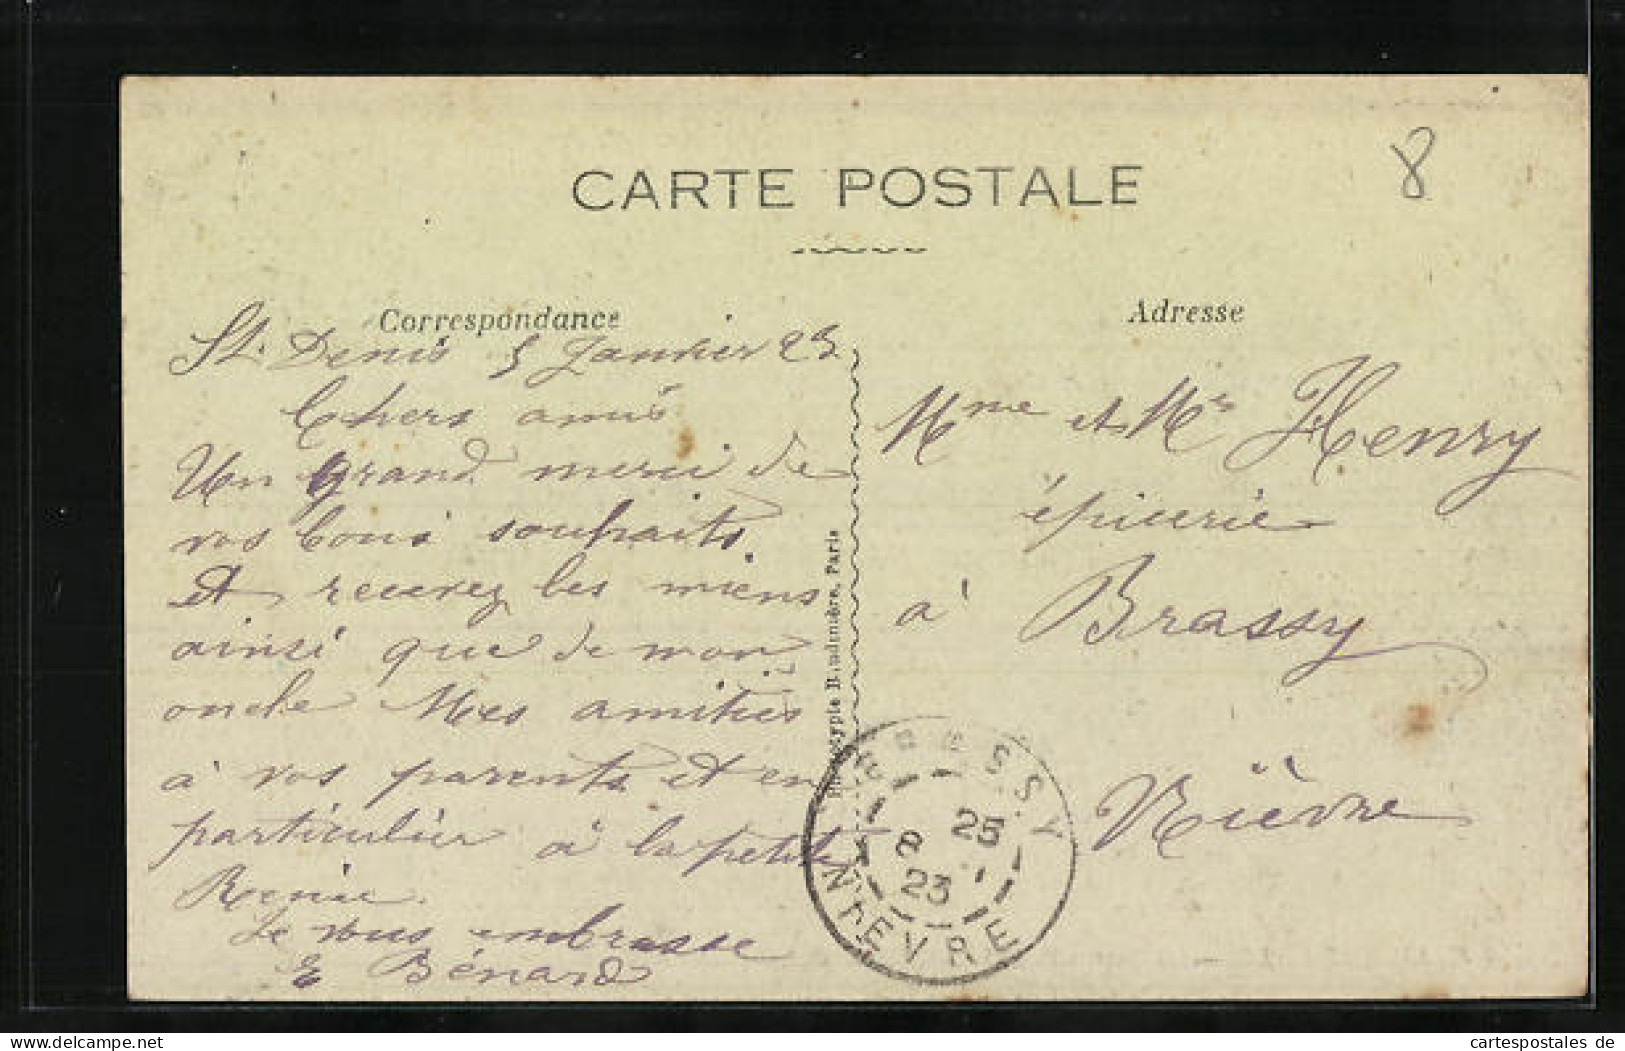 CARTE POSTALE
8
Correspondance
Adresse
St. Denis 5 Janvier 23
Chers amis
Un grand merci de
vos bons souhaits.
Et recevez les miens
ainsi que de mon
oncle Mes amitiés
à vos parents et en
particulier à la petite
Je vous embrasse
E Bénard
Mme et Mr Henry
épicerie
à Brassy
Nièvre
Baudinière, Paris
BRASSY
25
8 -1
23
NIEVRE
cartespostales de
www.delcampe.net